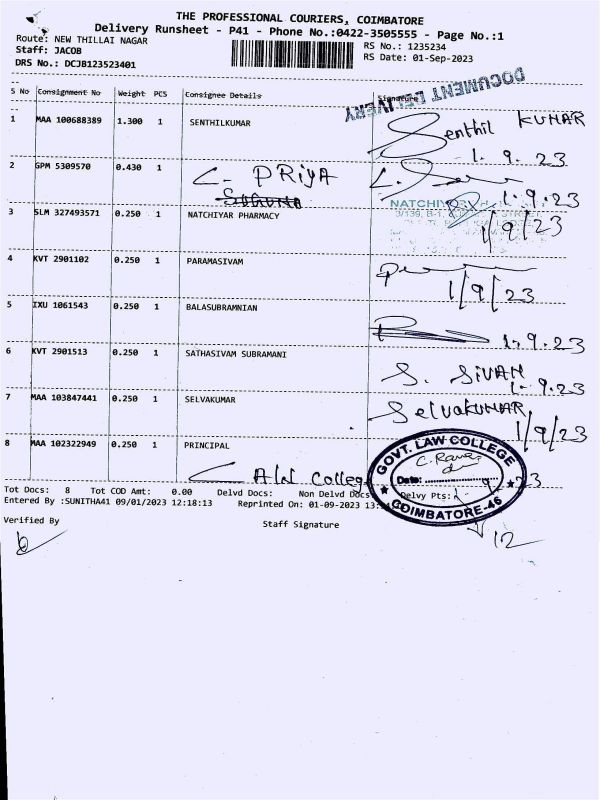 THE PROFESSIONAL COURIERS, COIMBATORE
Delivery Runsheet - P41 - Phone No.:0422-3505555 - Page No.:1
Route: NEW THILLAI NAGAR
RS No.: 1235234
Staff: JACOB
RS Date: 01-Sep-2023
DRS No.: DCJB123523401
DOCUMENT DELIVERY
S No Consignment No Weight PCS Consignee Details Signature
1 MAA 100688389 1.300 1 SENTHILKUMAR Senthil KUMAR
1. 9. 23
2 GPM 5309570 0.430 1 C. PRiyA
1.9.23
NATCHIY
3 SLM 327493571 0.250 1 NATCHIYAR PHARMACY 3/139, B-1,
1/9/23
4 KVT 2901102 0.250 1 PARAMASIVAM
1/9/23
5 IXU 1061543 0.250 1 BALASUBRAMNIAN
1.9.23
6 KVT 2901513 0.250 1 SATHASIVAM SUBRAMANI S. SIVAN
1-9.23
7 MAA 103847441 0.250 1 SELVAKUMAR SelvaKUMAR
1/9/23
8 MAA 102322949 0.250 1 PRINCIPAL
GOVT. LAW COLLEGE
Date:
COIMBATORE-46
College
Tot Docs: 8 Tot COD Amt: 0.00 Delvd Docs: Non Delvd Docs Delvy Pts:
Entered By :SUNITHA41 09/01/2023 12:18:13 Reprinted On: 01-09-2023
Verified By Staff Signature
12